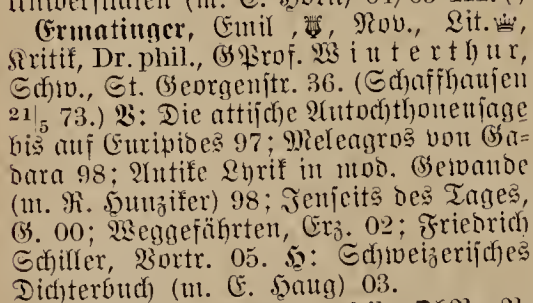 Ermatinger, Emil, Nov., Lit.
Kritik, Dr. phil., GProf. Winterthur,
Schw., St. Georgenstr. 36. (Schaffhausen
21|5 73.) V: Die attische Autochthonensage
bis auf Euripides 97; Meleagros von Ga=
dara 98; Antike Lyrik in mod. Gewande
(m. R. Hunziker) 98; Jenseits des Tages,
G. 00; Weggefährten, Erz. 02; Friedrich
Schiller, Vortr. 05. H: Schweizerisches
Dichterbuch (m. E. Haug) 03.